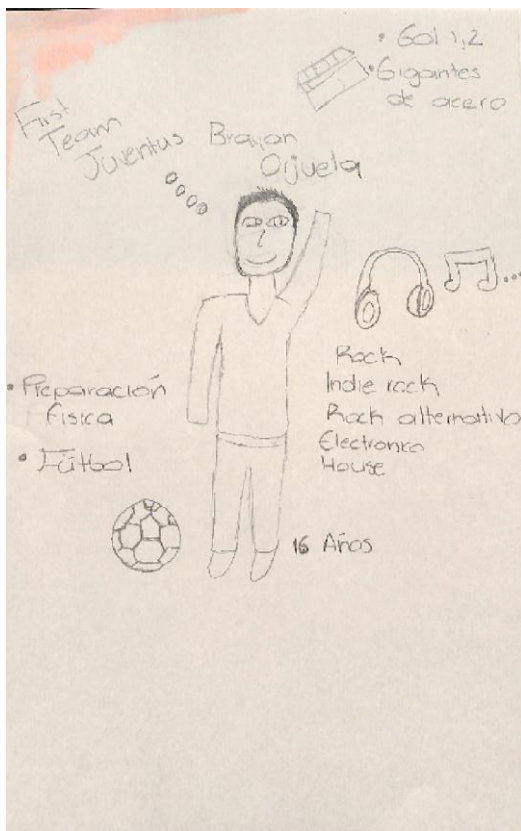 • Gol 1,2
• Gigantes
de acero
First
Team
Juventus
Brayan
Orjuela
Rock
Indie rock
Rock alternativo
Electronica
House
• Preparación
Física
• Fútbol
16 Años